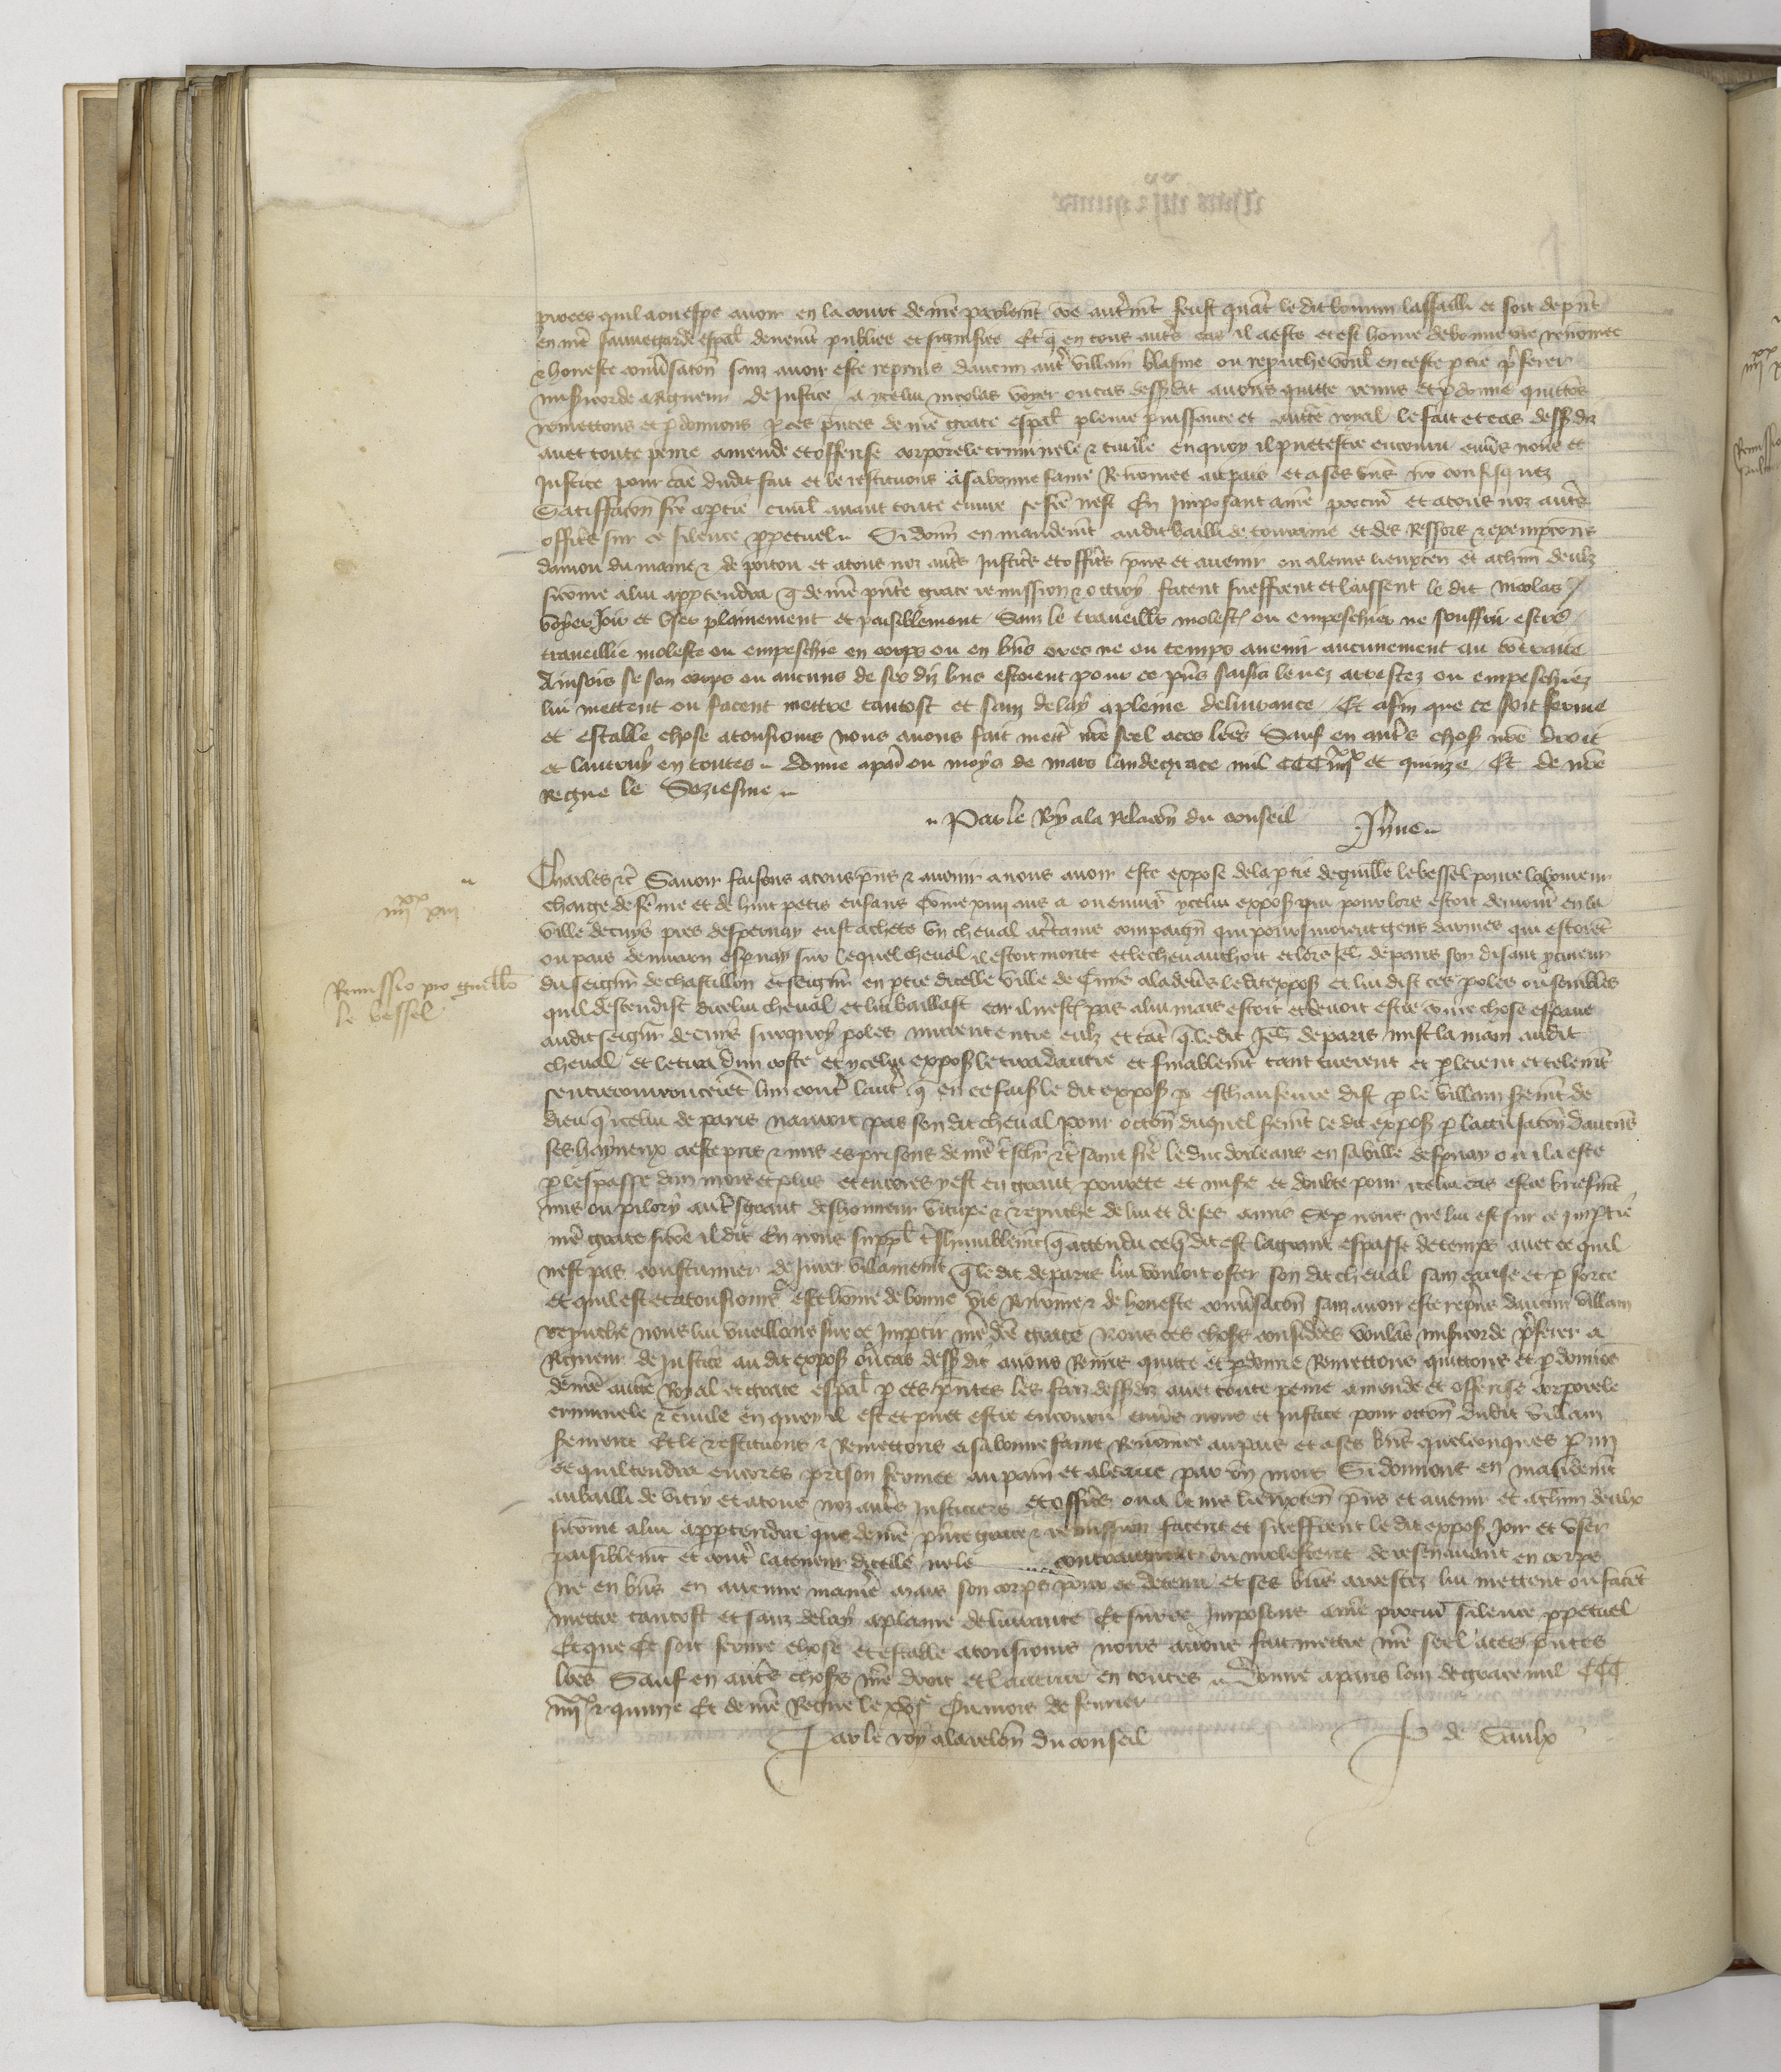 proces quil a ou espe avoir en la court de nre parlemt come autremt feust quant le dit bouvin lassailli et soit depute
en nre sauvegarde espal deuemt publiee et signifiee Et q en tous autres cas il a este et est home de bonne vie renomee
& honeste convsacon sanz avoir este reprins daucun autre villain blasme ou reprouche voulz en ceste ptie pferer
misicorde a rigueur de justice a ycelui nicolas voyer ou cas dessusdit avons quitte remis et pdonne quittons
remettons et pdonnons p ces pntes de nre grace espal pleine puissance et aucte royal le fait et cas dessusdiz
avec toute peine amende et offense corporele criminele & civile en quoy il puet estre encouru envs nous et
justice pour cause dudit fait et le restituons a sa bonne fame Renomee au pais et a ses biens no confisquez
Satisfacion fce a ptie civilmt avant toute euvre se fce nest En Imposant a nre procur et a tous noz autres
officrs sur ce silence ppetuel Si donns en mandemt au dit bailli de touraine et des Ressors & exempcions
danjou du maine & de poitou et a tous noz autres justicrs et officrs pns et avenir ou a leurs lieuxten et a chun deulx
sicome a lui appartendra q de nre pnte grace remission & ottroy facent sueffrent et laissent le dit nicolas
voyer Joir et user plainement et paisiblement Sanz le traveillr molestr ou empeschier ne souffrir estre
traveillie moleste ou empeschie en corps ou en biens ores ne ou temps avenir aucunement au contraire
Ainsois se son corps ou aucuns de ses diz biens estoient pour ce pris saisis levez arrestez ou empeschiez
lui mettent ou facent mettre tantost et sanz delay a pleine delivrance Et afin que ce soit ferme
et estable chose a tousjours nous avons fait mettre nre seel a ces lres Sauf en autres choses nre droit
et lautruy en toutes Donne a paris ou moys de mars lan de grace mil CCC iiiixx et quinze Et de nre
Regne le Seziesme
Par le Roy a la Relacon du conseil
Charles &c Savoir faisons a tous pns & avenir a nous avoir este expose de la ptie de guille le vessel povre laboureur
iiiixx xiiii
charge de feme et de huit petis enfans Come xiiii ans a ou environ ycelui exposant qui pour lors estoit demour en la
ville de cuys pres despernay eust achete un cheval a ctains compaignons qui pour lors movient gens darmes qui estoient
ou pais denviron espnay sur lequel cheval il estoit monte et le chevauchoit et lors Jeh de paris soy disant receveur
Remissio pro guillo
le vessel
du seigneur de chastillon et seigneur en ptie dicelle ville de Cuys ala devs ledit exposant et lui dist ces poles ou semblables
quil descendist dicelui cheval et lui baillast car il nestoit pas a lui mais estoit et devoit estre come chose espave
audit seigneur de Cuys surquoy poles murent entre eulz et tant q le dit Jeh de paris mist la main au dit
cheval et le tira dun coste et ycelui exposant le tira dautre et finablemt tant tirerent et plerent et telemt
sentrecourroucerent lun contre lautre q en ce faisant le dit exposant p eschaufeure dist p le villain sermt de
dieu q icelui de paris nauroit pas son dit cheval pour occon duquel sermt le dit exposant p lacusacion daucuns
ses hayneux a este pris & mis es prisons de nre tschr & &c sanit fre le duc dorleans en sa ville despnay ou il a este
p lespasse dun mois et plus et encores y est en grant povrete et misere et doubte pour icelui cas estre briefmt
mis ou pilory au tresgrant deshonneur vitupe & reprouche de lui et de ses amis Se p nous ne lui est sur ce impartie
nre grace sicome il dit En nous suppl tshumblemt q attendu ce q dit est la grant espasse de temps avec ce quil
nest pas coustumier de jurer villainemt q le dit de paris lui vouloit oster son dit cheval sanz cause et p force
et quil est et a tousjours este home de bonne vie Renomee & de honeste convsacon sanz avoir este reprins daucun villain
reprouche nous lui vueillons sur ce Impartir nre dce grace Nous ces choses considerees voulans misicorde pferer a
Rigueur de justice au dit exposant ou cas dessusdit avons Remis quitte et pdonne Remettons quittons et pdonnos
de nre aucte Royal et grace espal p ces pntes les faiz dessusdiz avec toute peine amende et offense corporele
criminele & civile en quoy il est et puet estre encouru envs nous et justice pour occon dudit villain
serment Et le restituons & Remettons a sa bonne fame Renomee au pais et a ses biens quelconques pmi
ce quil tendra encores prison fermee au pain et a leaue par un mois Si donnons en mandemt
au bailli de vitry et a tous noz autres justiciers et officrs ou a leurs lieuxten pns et avenir et a chun deulx
sicome a lui appartendra que de nre pnte grace & remission facent et sueffrent le dit exposant joir et user
paisiblemt et contre la teneur dicelle ne le contraignent ou molestent doresenavant en corps
ne en biens en aucune maniere mais son corps pour ce detenu et ses biens arrestez lui mettent ou facent
mettre tantost et sanz delay a plaine delivrance Et sur ce Imposons a nre procur silence ppetuel
Et que Ce soit ferme chose et estable a tousjours nous avons fait mettre nre seel a ces pntes
lres Sauf en autres choses nre droit et lautrui en toutes Donne a paris lan de grace mil CCC
iiiixx & quinze Et de nre Regne le xvje Ou mois de fevrier
Par le roy a la relon du conseil P de Saulx